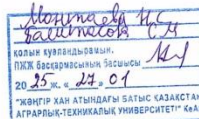 қолын куәландырамын.
ПЖЖ басқармасының басшысы
20 25 ж. « 27 » 01
"ЖӘҢГІР ХАН АТЫНДАҒЫ БАТЫС ҚАЗАҚСТАН
АГРАРЛЫҚ-ТЕХНИКАЛЫҚ УНИВЕРСИТЕТІ" КеА